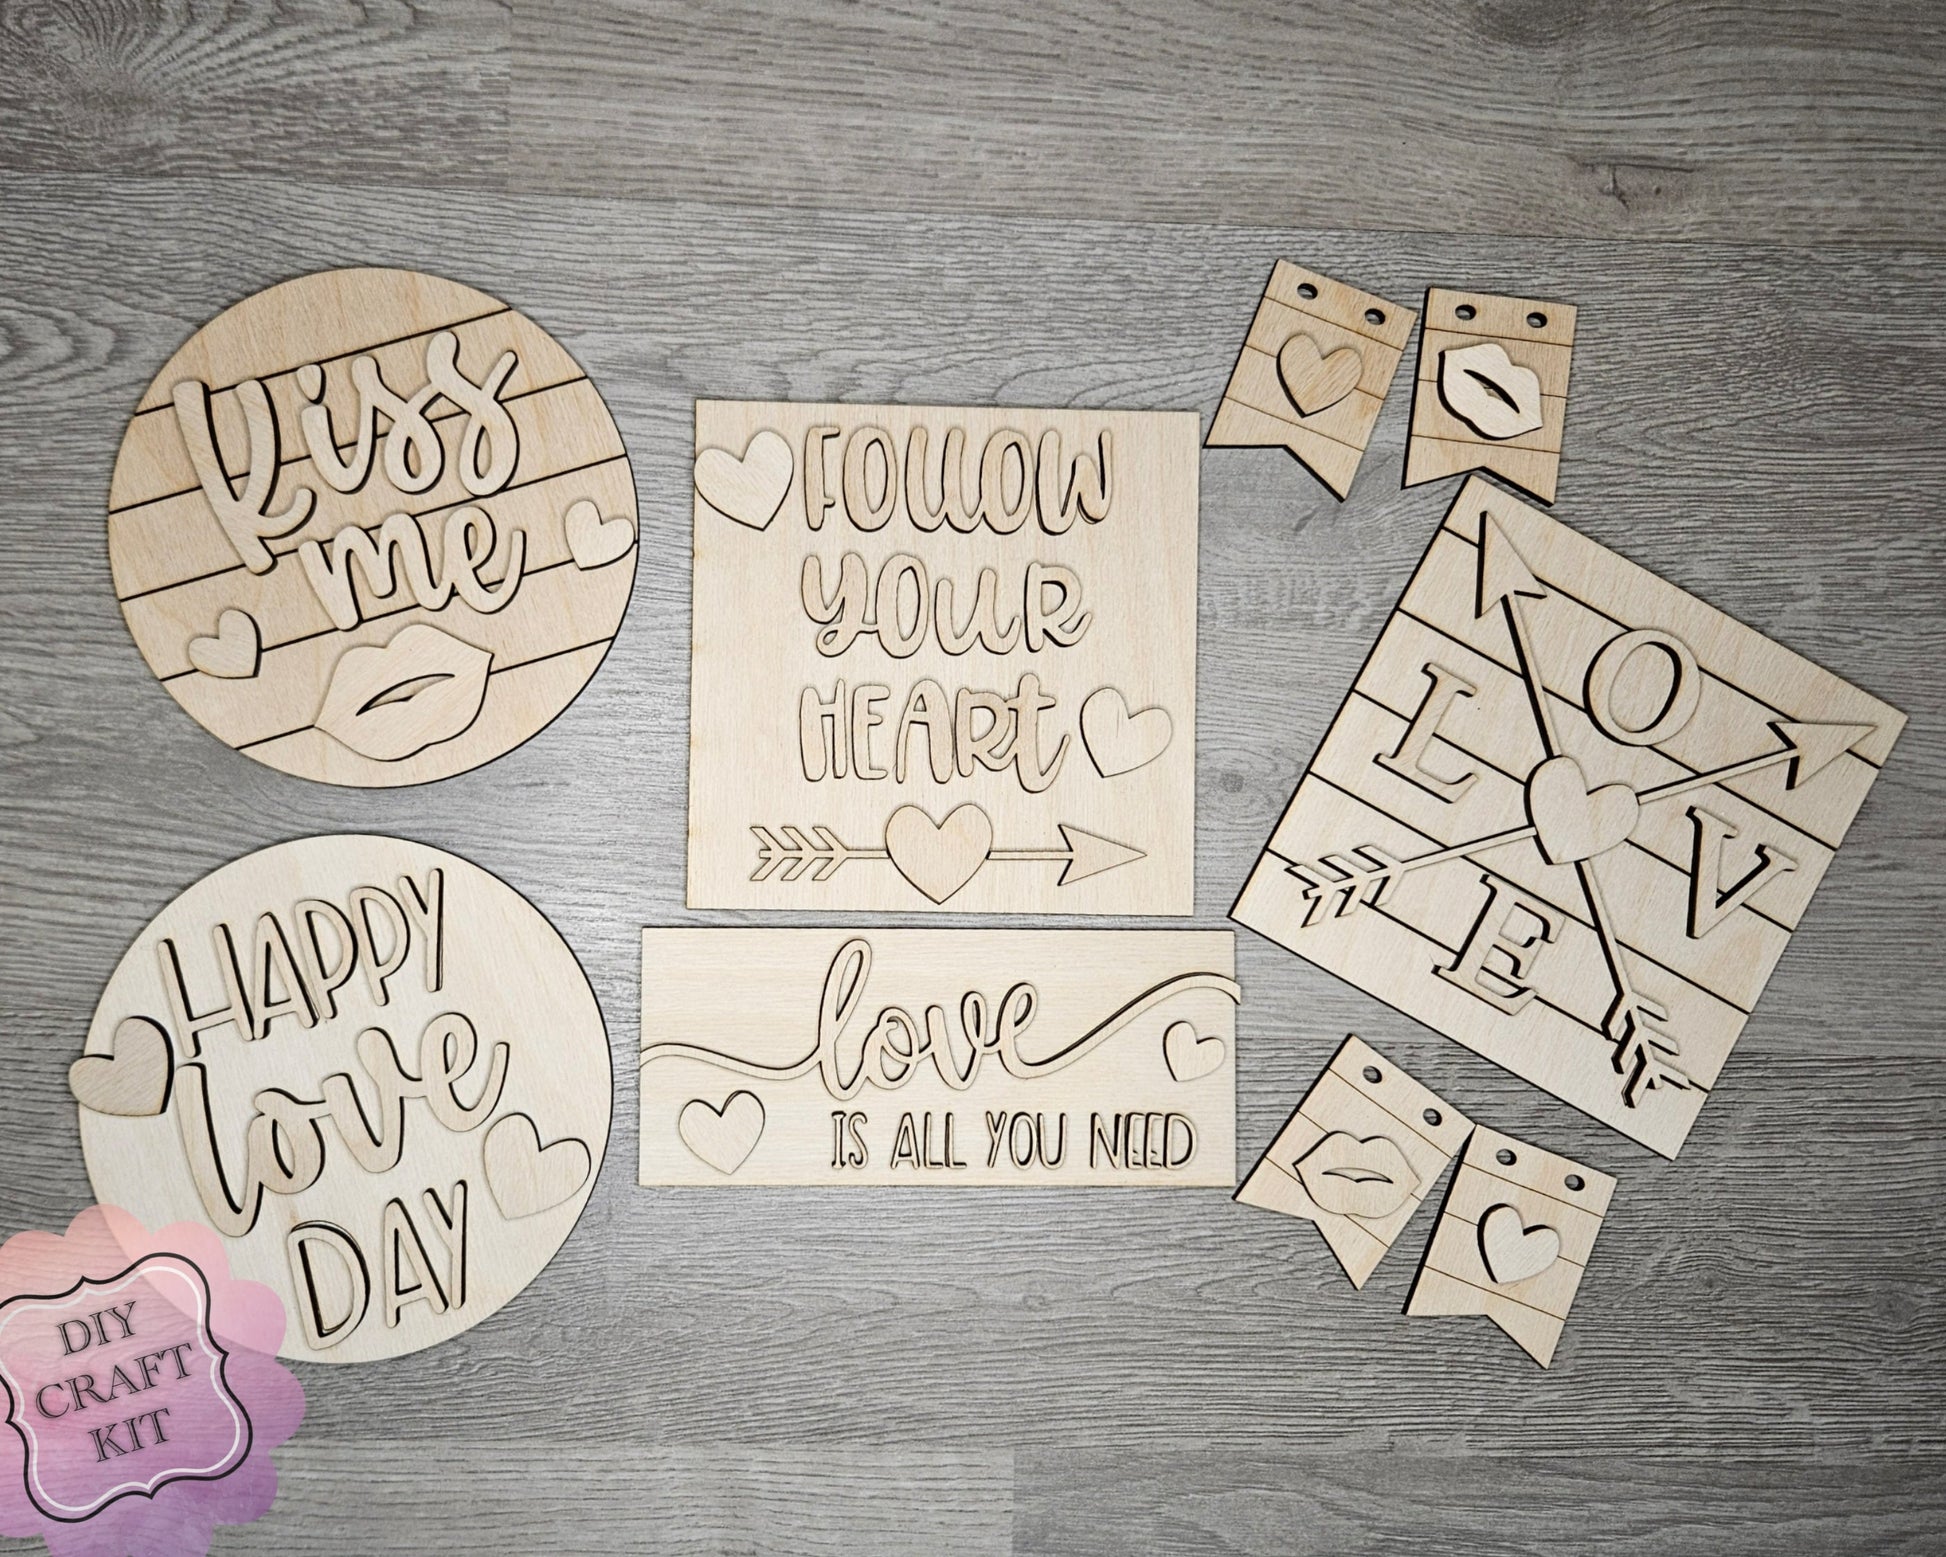 Kiss
me
FOLLOW
YOUR
HEARt
L O V E
HAPPY
love
DAY
love
IS ALL YOU NEED
DIY
CRAFT
KIT